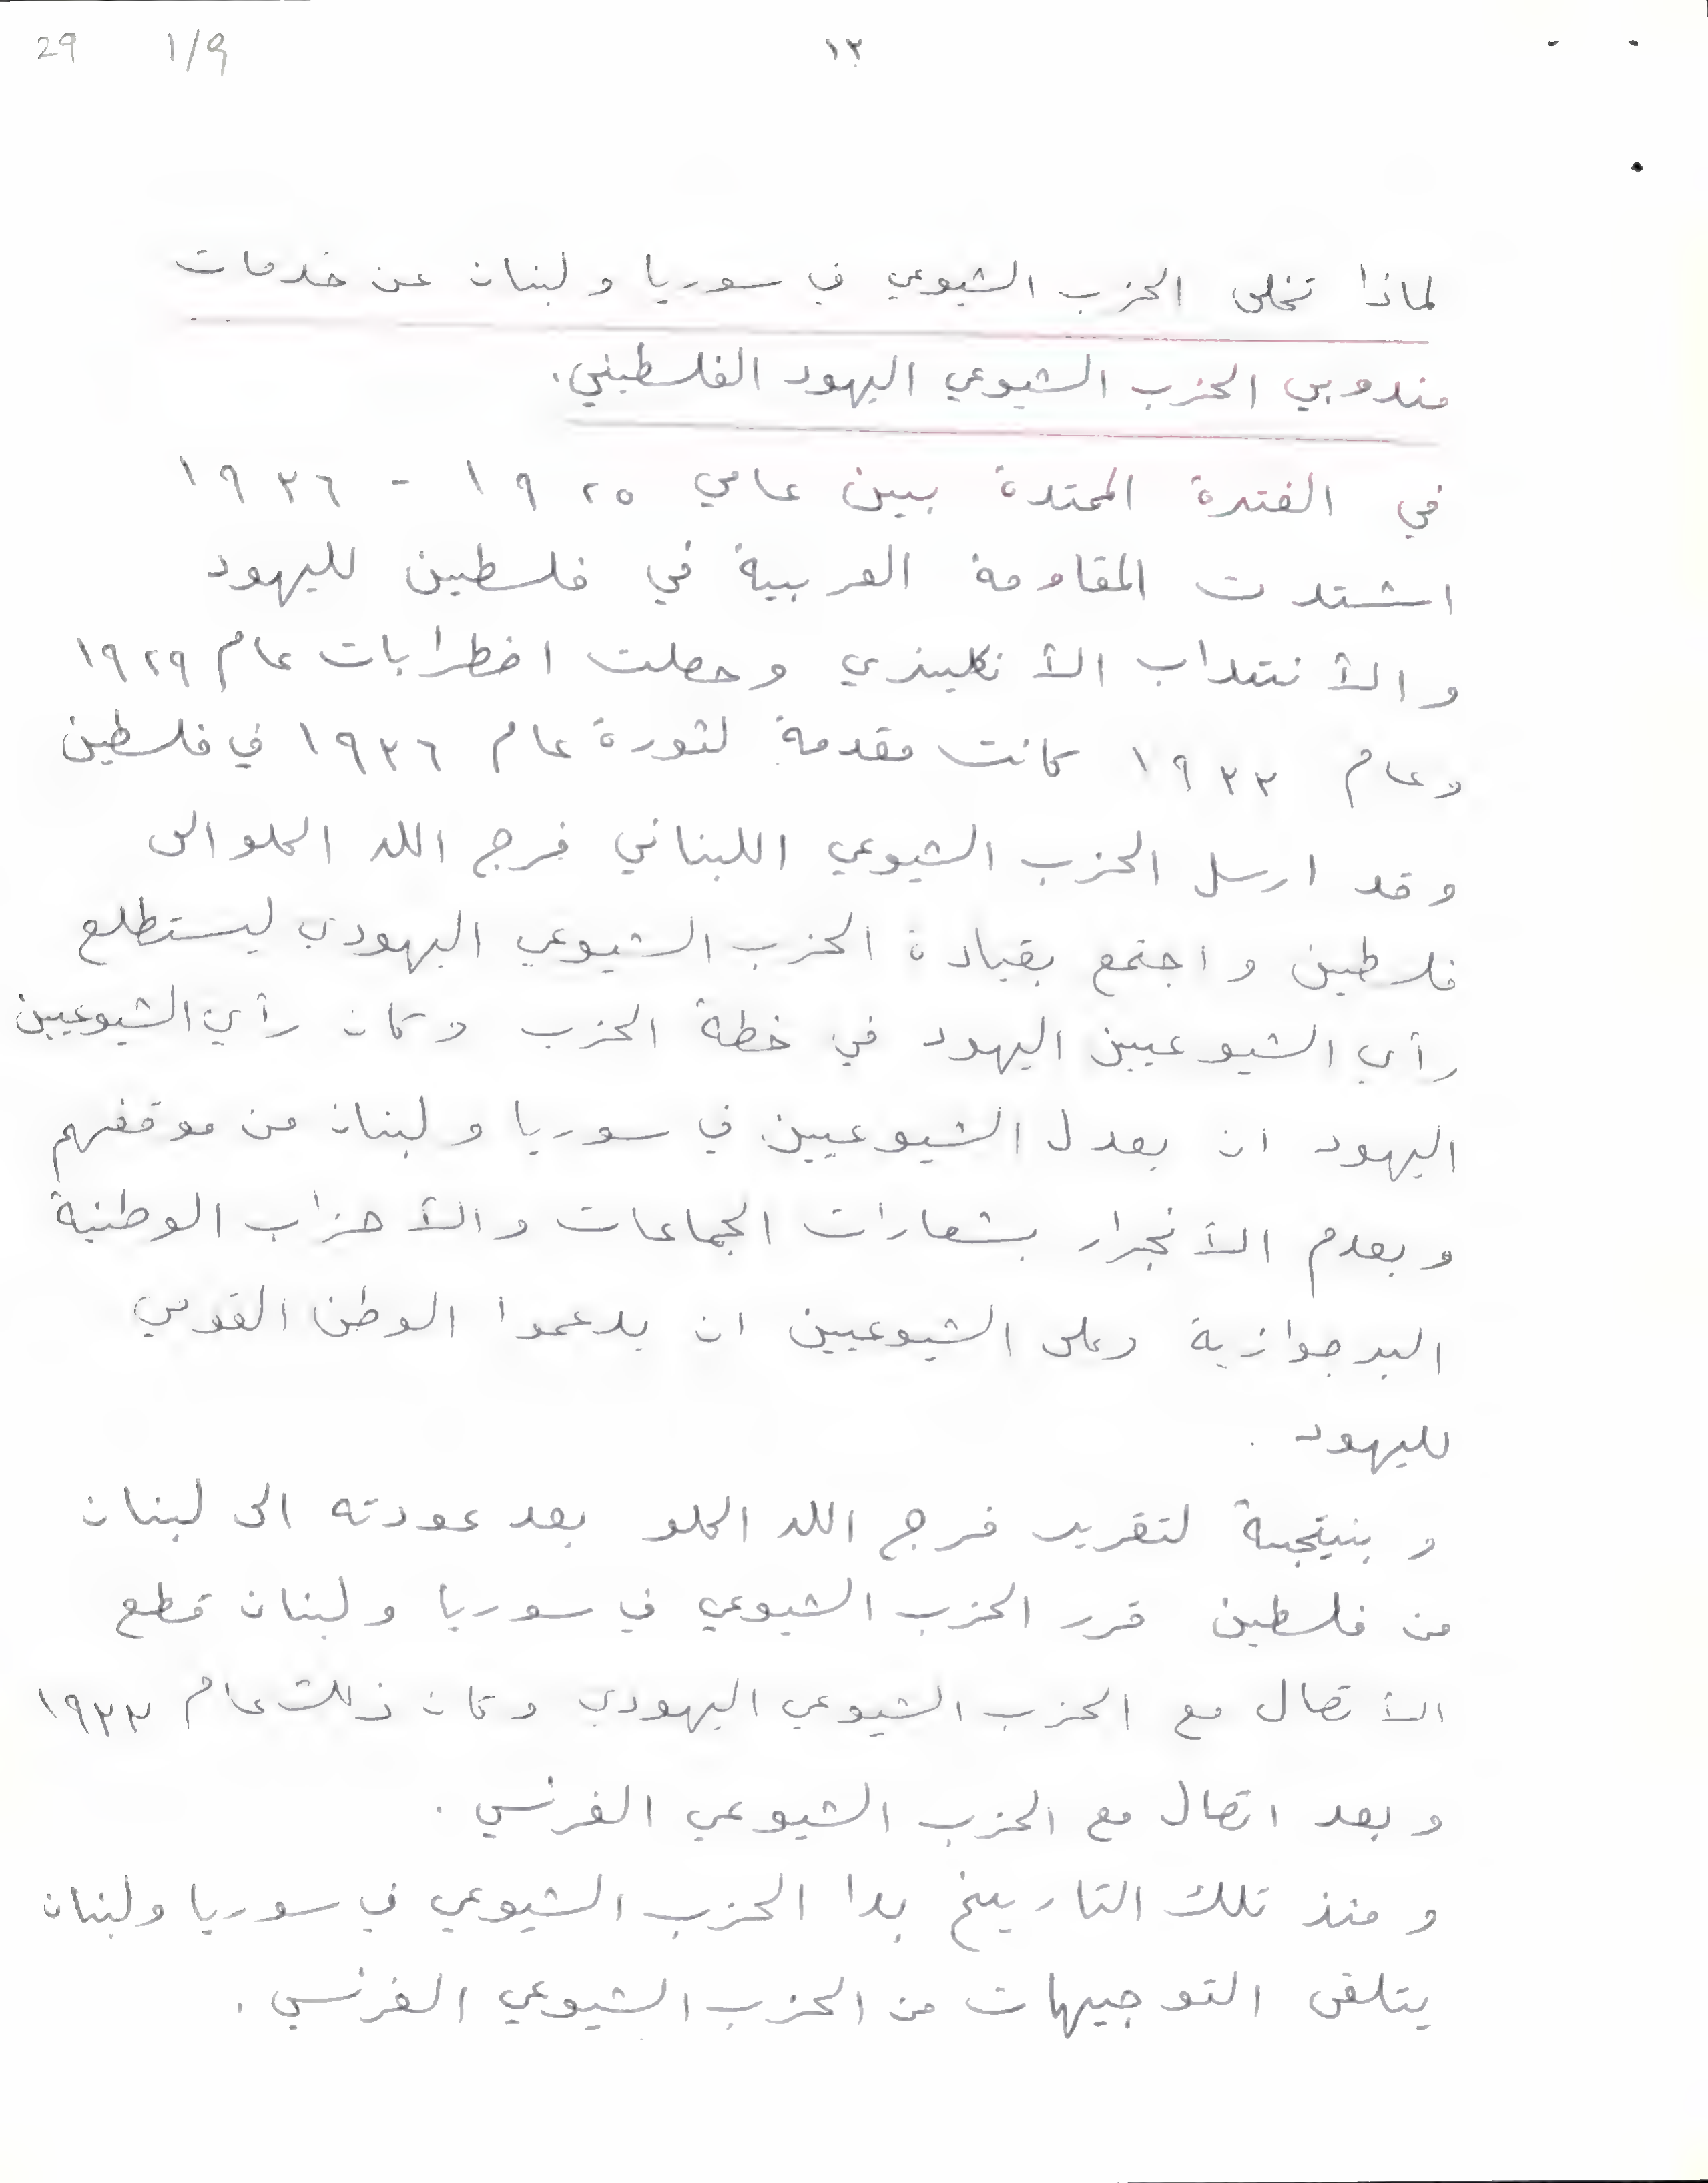 29 1/9 ١٢
لماذا تخلى الحزب الشيوعي في سوريا ولبنان عن خدمات
مندوبي الحزب الشيوعي اليهود الفلسطيني.
في الفترة الممتدة بين عامي ١٩٢٥ - ١٩٣٦
اشتدت المقاومة العربية في فلسطين لليهود
والأنتداب الأنكليزي وحصلت اضطرابات عام ١٩٢٩
وعام ١٩٣٣ كانت مقدمة لثورة عام ١٩٣٦ في فلسطين
وقد ارسل الحزب الشيوعي اللبناني فرج الله الحلو الى
فلسطين واجتمع بقيادة الحزب الشيوعي اليهودي ليستطلع
رأي الشيوعيين اليهود في خطة الحزب وكان رأي الشيوعيين
اليهود ان يعدل الشيوعيين في سوريا ولبنان من موقفهم
وبعدم الأنجرار بشعارات الجماعات والأحزاب الوطنية
البرجوازية وعلى الشيوعيين ان يدعموا الوطن القومي
لليهود.
وبنتيجة لتقرير فرج الله الحلو بعد عودته الى لبنان
من فلسطين قرر الحزب الشيوعي في سوريا ولبنان قطع
الأتصال مع الحزب الشيوعي اليهودي وكان ذلك عام ١٩٣٣
وبعد اتصال مع الحزب الشيوعي الفرنسي.
ومنذ تلك التاريخ بدا الحزب الشيوعي في سوريا ولبنان
يتلقى التوجيهات من الحزب الشيوعي الفرنسي.